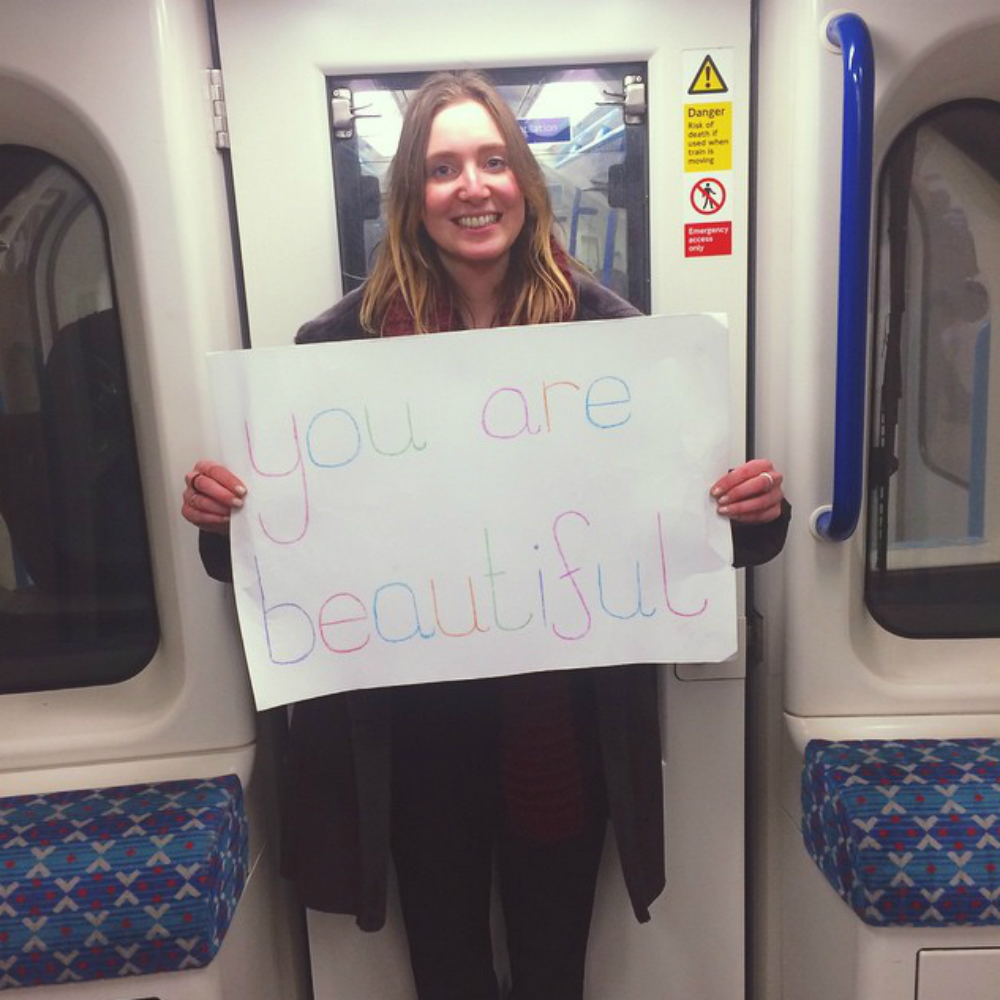 you are
beautiful
Danger
Risk of
death if
used when
train is
moving
Emergency
access
only